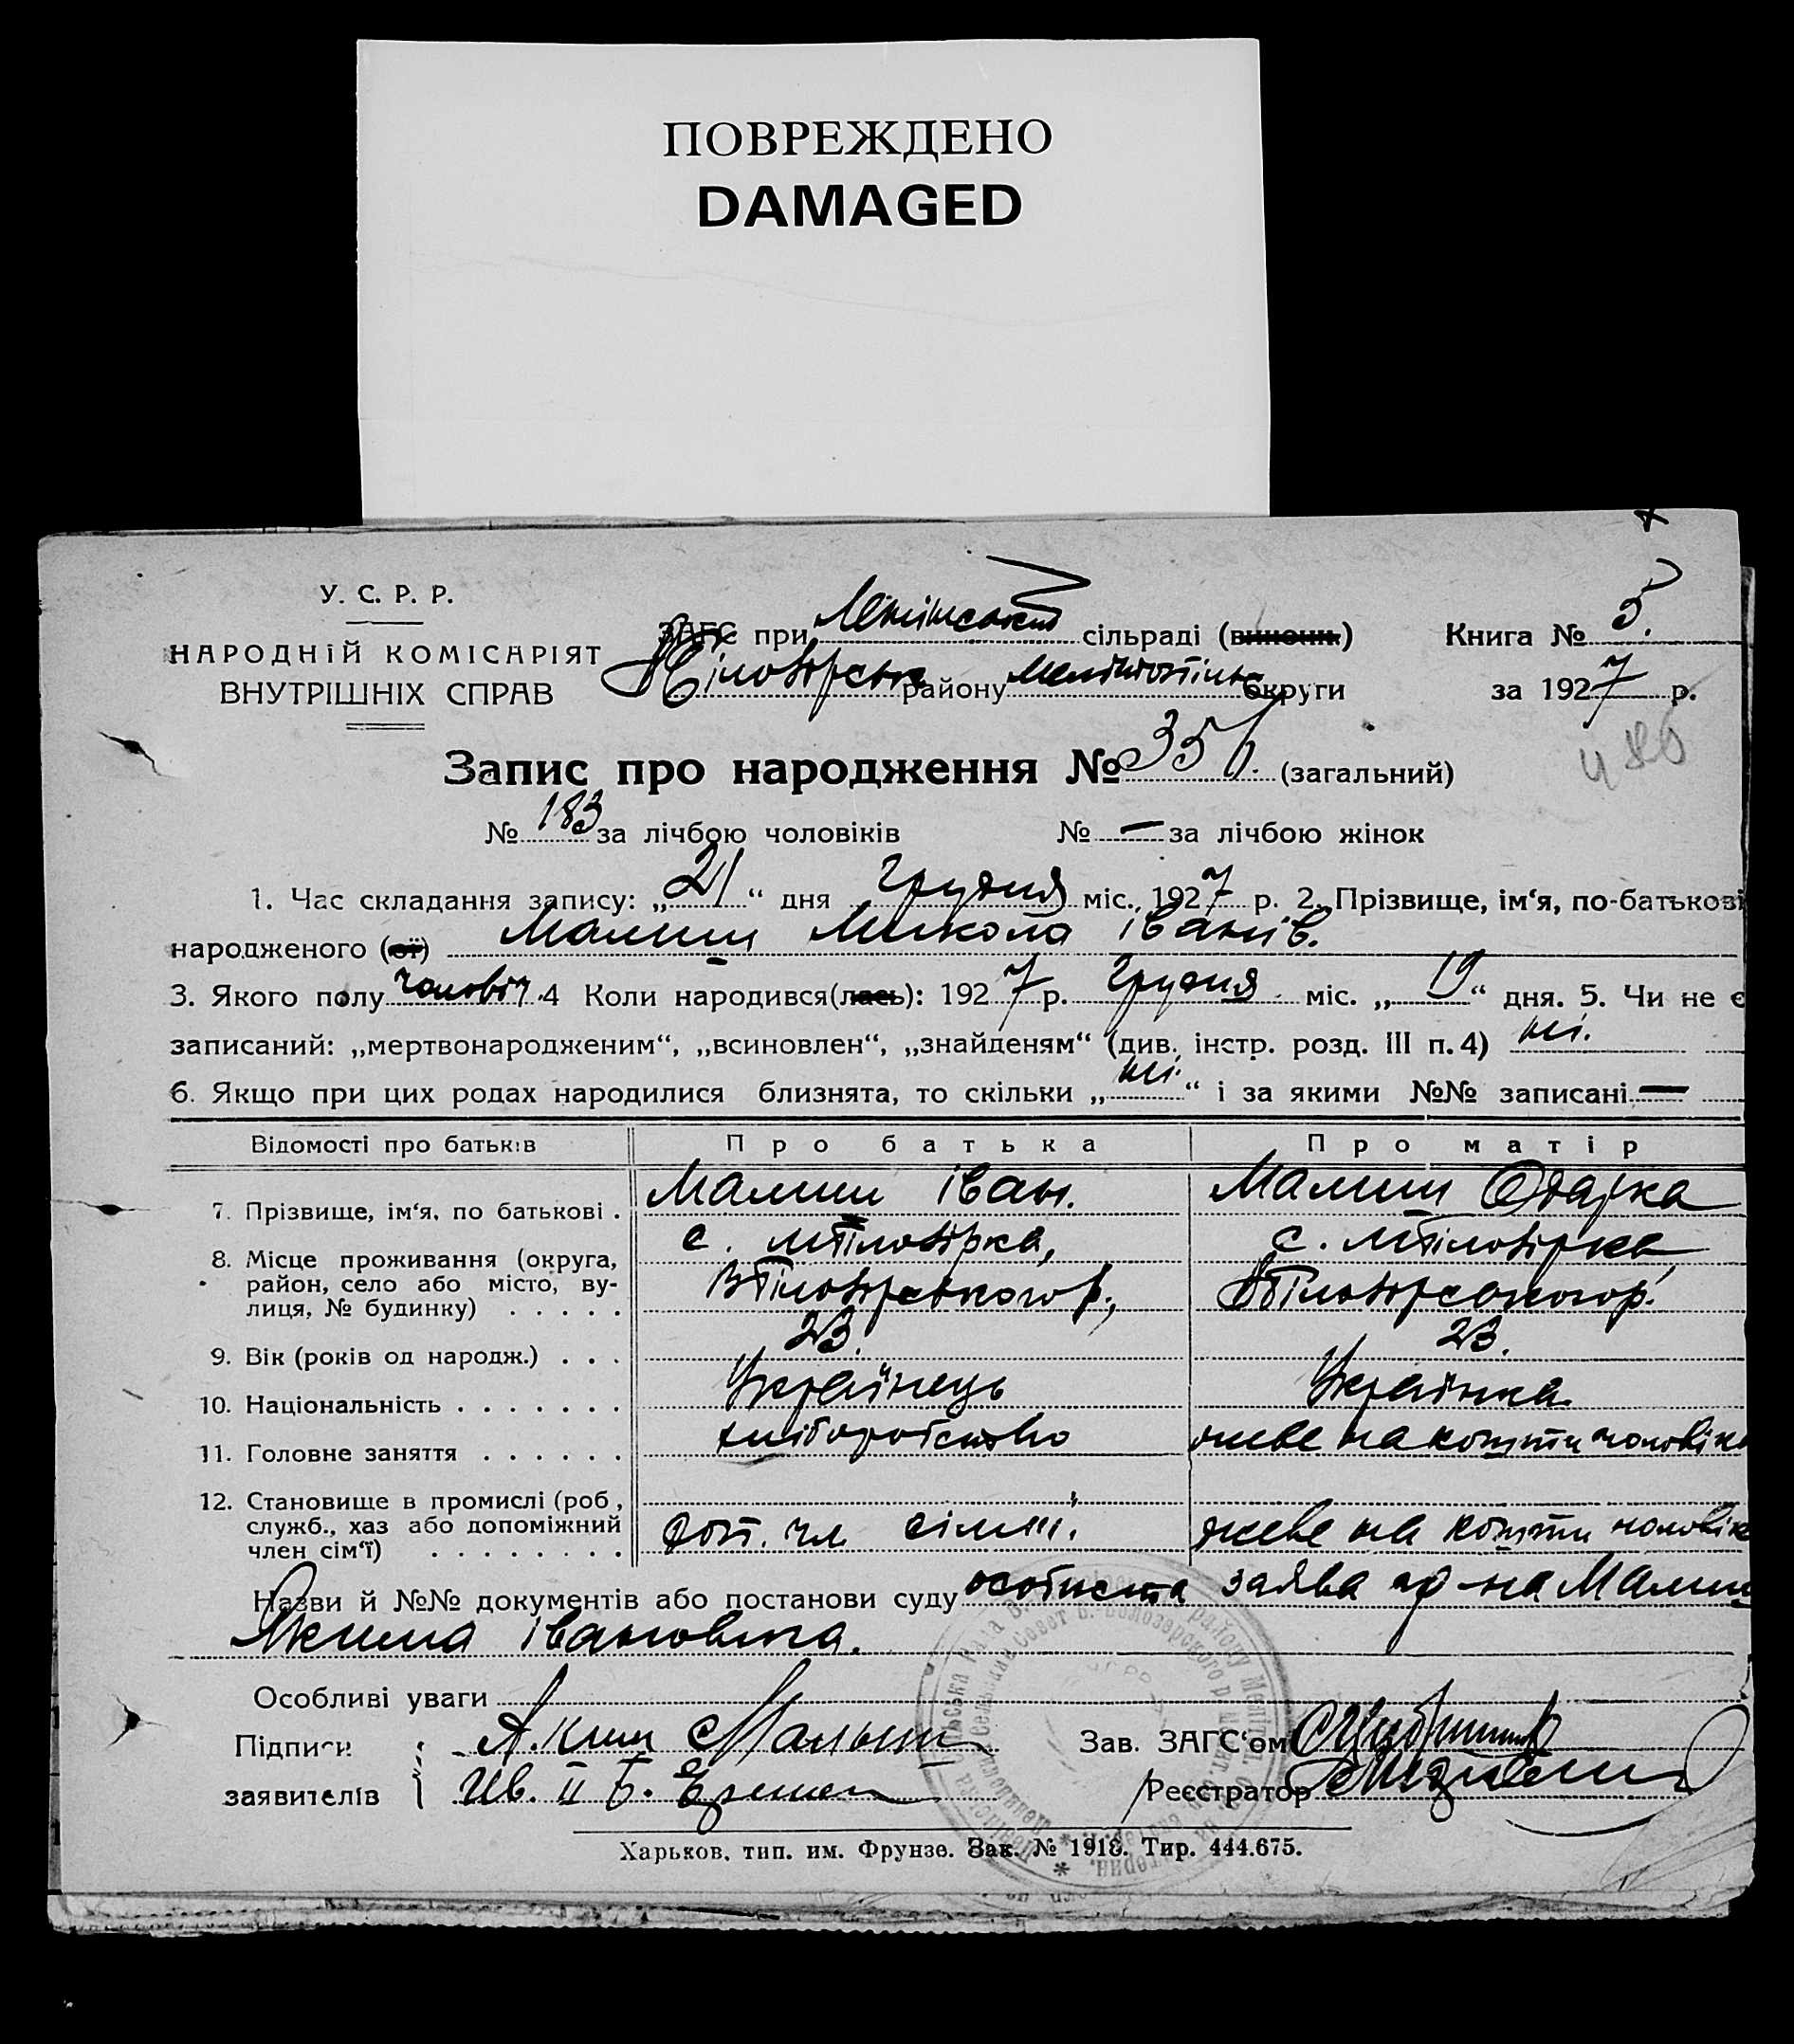 ПОВРЕЖДЕНО
DAMAGED
У. С. Р. Р.
НАРОДНІЙ КОМІСАРІЯТ
ВНУТРІШНІХ СПРАВ
ЗАГС при Ленінській сільраді (виконк.) Книга № 5.
району Мелітопільс округи за 1927 р.
Запис про народження № 356. (загальний)
№ 183 за лічбою чоловіків № — за лічбою жінок
1. Час складання запису: „21“ дня Грудня міс. 1927 р. 2. Прізвище, ім‘я, по-батькові
народженого (ої) Малиш Микола Іванів.
3. Якого полу чоловіч. 4 Коли народився(лась): 1927 р. Грудня міс. „19“ дня. 5. Чи не є
записаний: „мертвонародженим“, „всиновлен“, „знайденям“ (див. інстр. розд. III п. 4) ні.
6. Якщо при цих родах народилися близнята, то скільки „ні.“ і за якими №№ записані —
Відомості про батьків Про батька Про матір
7. Прізвище, ім‘я, по батькові . Малиш Іван. Малиш Одарка
8. Місце проживання (округа, район, село або місто, вулиця, № будинку) . . . . . с. с.
9. Вік (років од народж.) . . . 23. 23.
10. Національність . . . . . . . Українець Українка.
11. Головне заняття . . . . . . хліборобство живе на кошти чоловіка
12. Становище в промислі (роб., служб., хаз або допоміжний член сім‘ї) . . . . . . . . доп. чл сімї. живе на кошти чоловік
Назви й №№ документів або постанови суду особиста заява гр-на Малиш
Якима Івановича.
Особливі уваги
Підписи Аким Малыш Зав. ЗАГС‘ом
заявителів Реєстратор
Харьков, тип. им. Фрунзе. Зак. № 1918. Тир. 444.675.